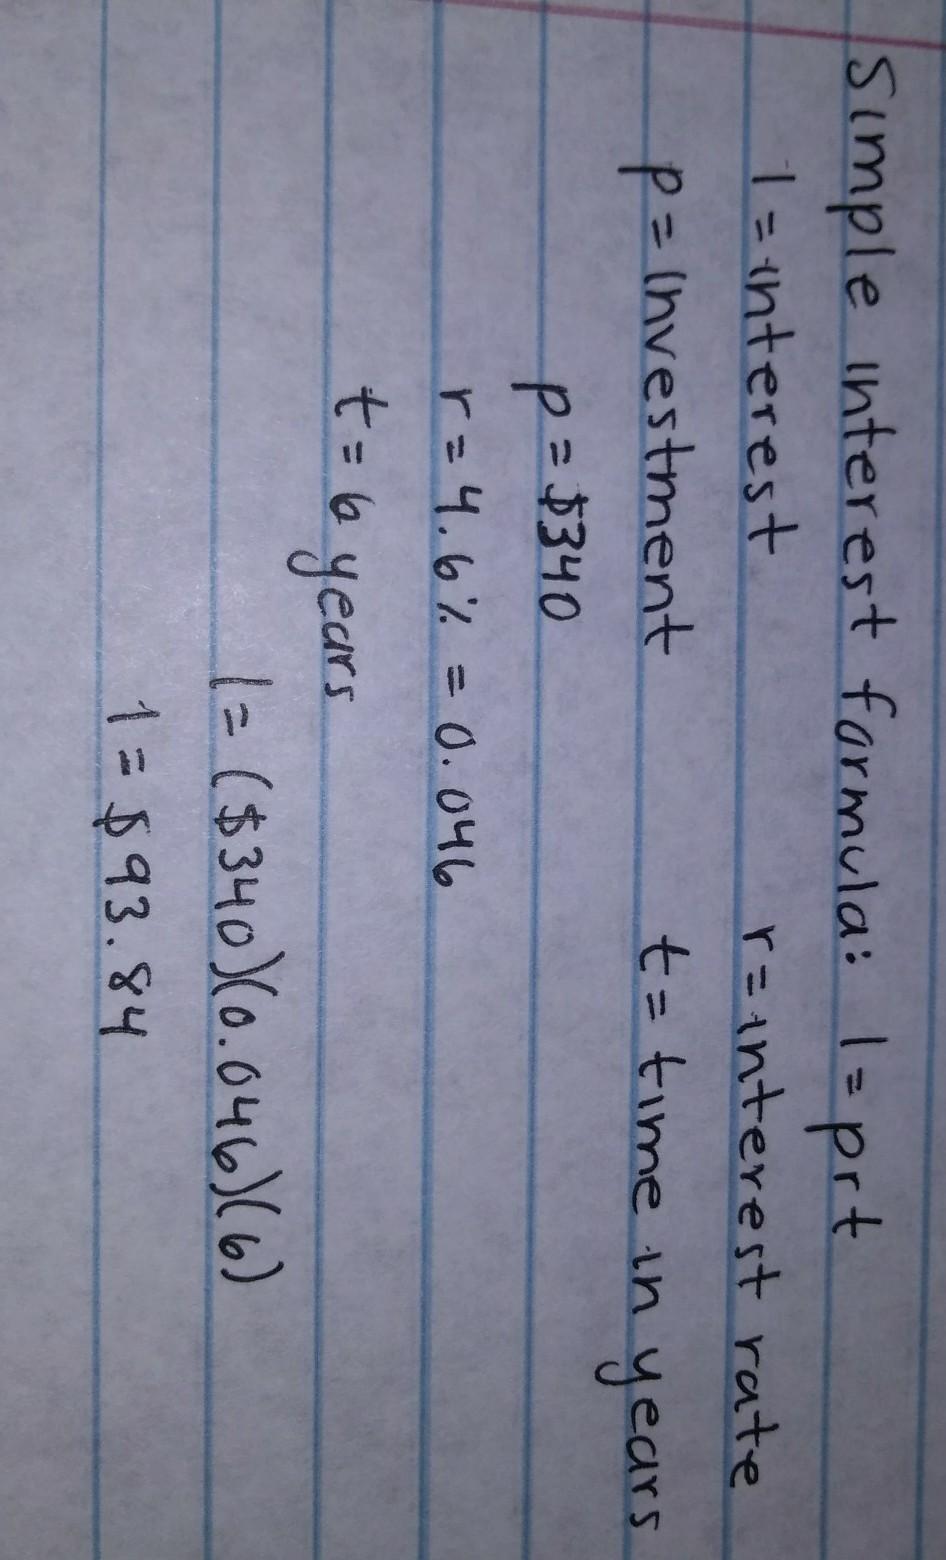 Simple interest formula: I = prt
I = interest r = interest rate
p = investment t = time in years
p = $340
r = 4.6% = 0.046
t = 6 years
I = ($340)(0.046)(6)
I = $93.84